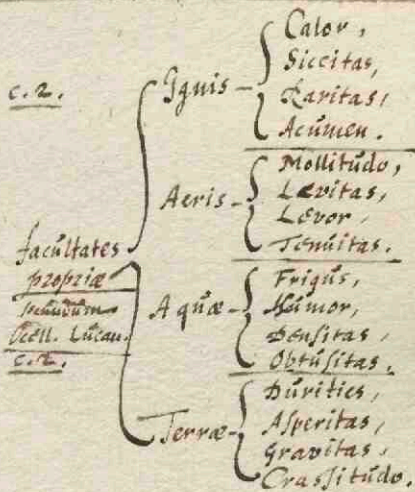 c.2.
facultates
propriæ
secundum
Ocell. Lucan.
c.2.
Ignis
Calor,
Siccitas,
Raritas,
Acúmen.
Aeris
Mollitúdo,
Lævitas,
Levor,
Tenúitas.
Aqúæ
Frigús,
Húmor,
Densitas,
Obtúsitas.
Terræ
Dúrities,
Asperitas,
Gravitas,
Crassitúdo.